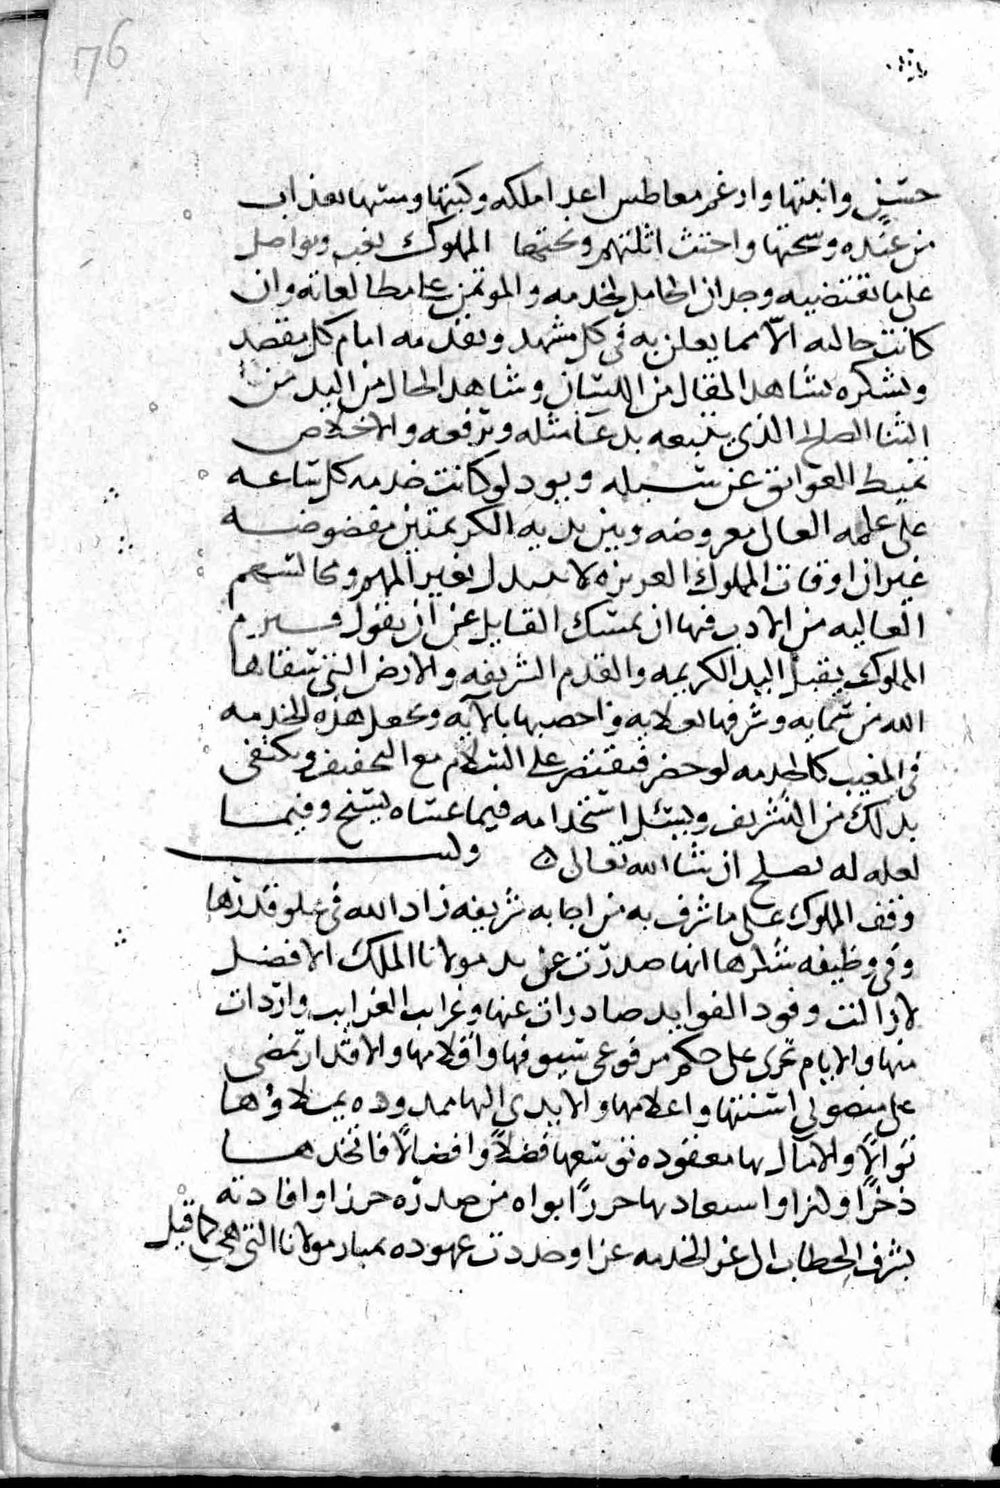 76
حسن وانبتها وارغم معاطس اعدا ملكه وكبتها ومسها بعذاب
من عنده وسحتها واجتث اثلتهم ونحتها المملوك يغب ويواصل
على ما تقتضيه وجدان الحامل لخدمه والموتمن على مطالعاته وان
كانت حاله الا مما يعلن به فى كل مشهد ويقدمه امام كل مقصد
ويشكره بشاهد المقال من اللسان وشاهد الحال من اليد من
الثنا الصالح الذى يتبعه بدعا مثله وترفعه والاخلاص
يميط العوايق عن سبيله وبوده لو كانت خدمه كل ساعه
على علمه العالى معروضه وبين يديه الكريمتين مفضوضه
غير ان اوقات الملوك العزيزه لا تبدل بغير المهم ومجالسهم
العاليه من الادب فيها ان يمسك القايل عن ان يقول
المملوك يقبل اليد الكريمه والقدم الشريفه والارض التى سقاها
الله من سمايه وشرفها بولايه واخصبها بالايه ويجعل هذه الخدمه
فى المغيب كالخدمه لو حضر فيقتصر على السلام مع التخفيف ويكتفى
بذلك من التشريف ويسئل استخدامه فيما عساه يسنح وفيما
لعله له يصلح ان شا الله تعالى وله
وقف المملوك على ما شرف به من اجابه شريفه زاد الله فى علو قدرها
وفى وظيفه شكرها انها صدرت عن يد مولانا الملك الافضل
لا زالت وفود الفوايد صادرات عنها وغرايب الغرايب واردات
منها والايام تجرى على حكم مرفوعى سيوفها واقلامها والاقدار تمضى
على منصوبى اسنتها واعلامها والايدى اليها ممدوده يملاؤها
نوالا والامال بها معقوده توسعها فضلا وافضالا فاتخدها
ذخرا وكنزا واستعاد بها حرزا بواه من صدره حرزا وافادته
بشرف الخطاب الى عز الخدمه عزا وجددت عهوده بمبار مولانا التى هى كما قيل